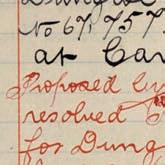 No 67,757.
at Car
Proposed by
resolved
for Dung